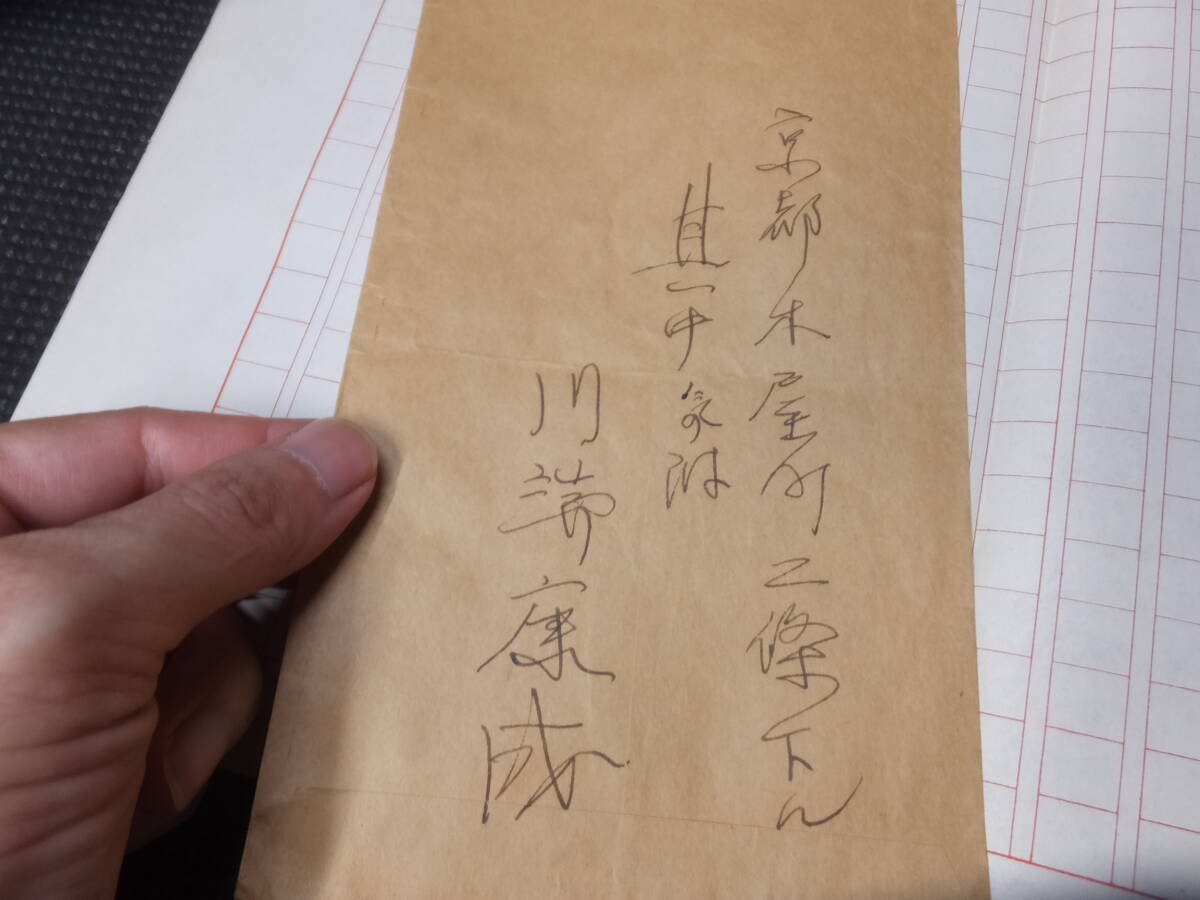 京都木屋町二條下ル
其中気附
川端康成